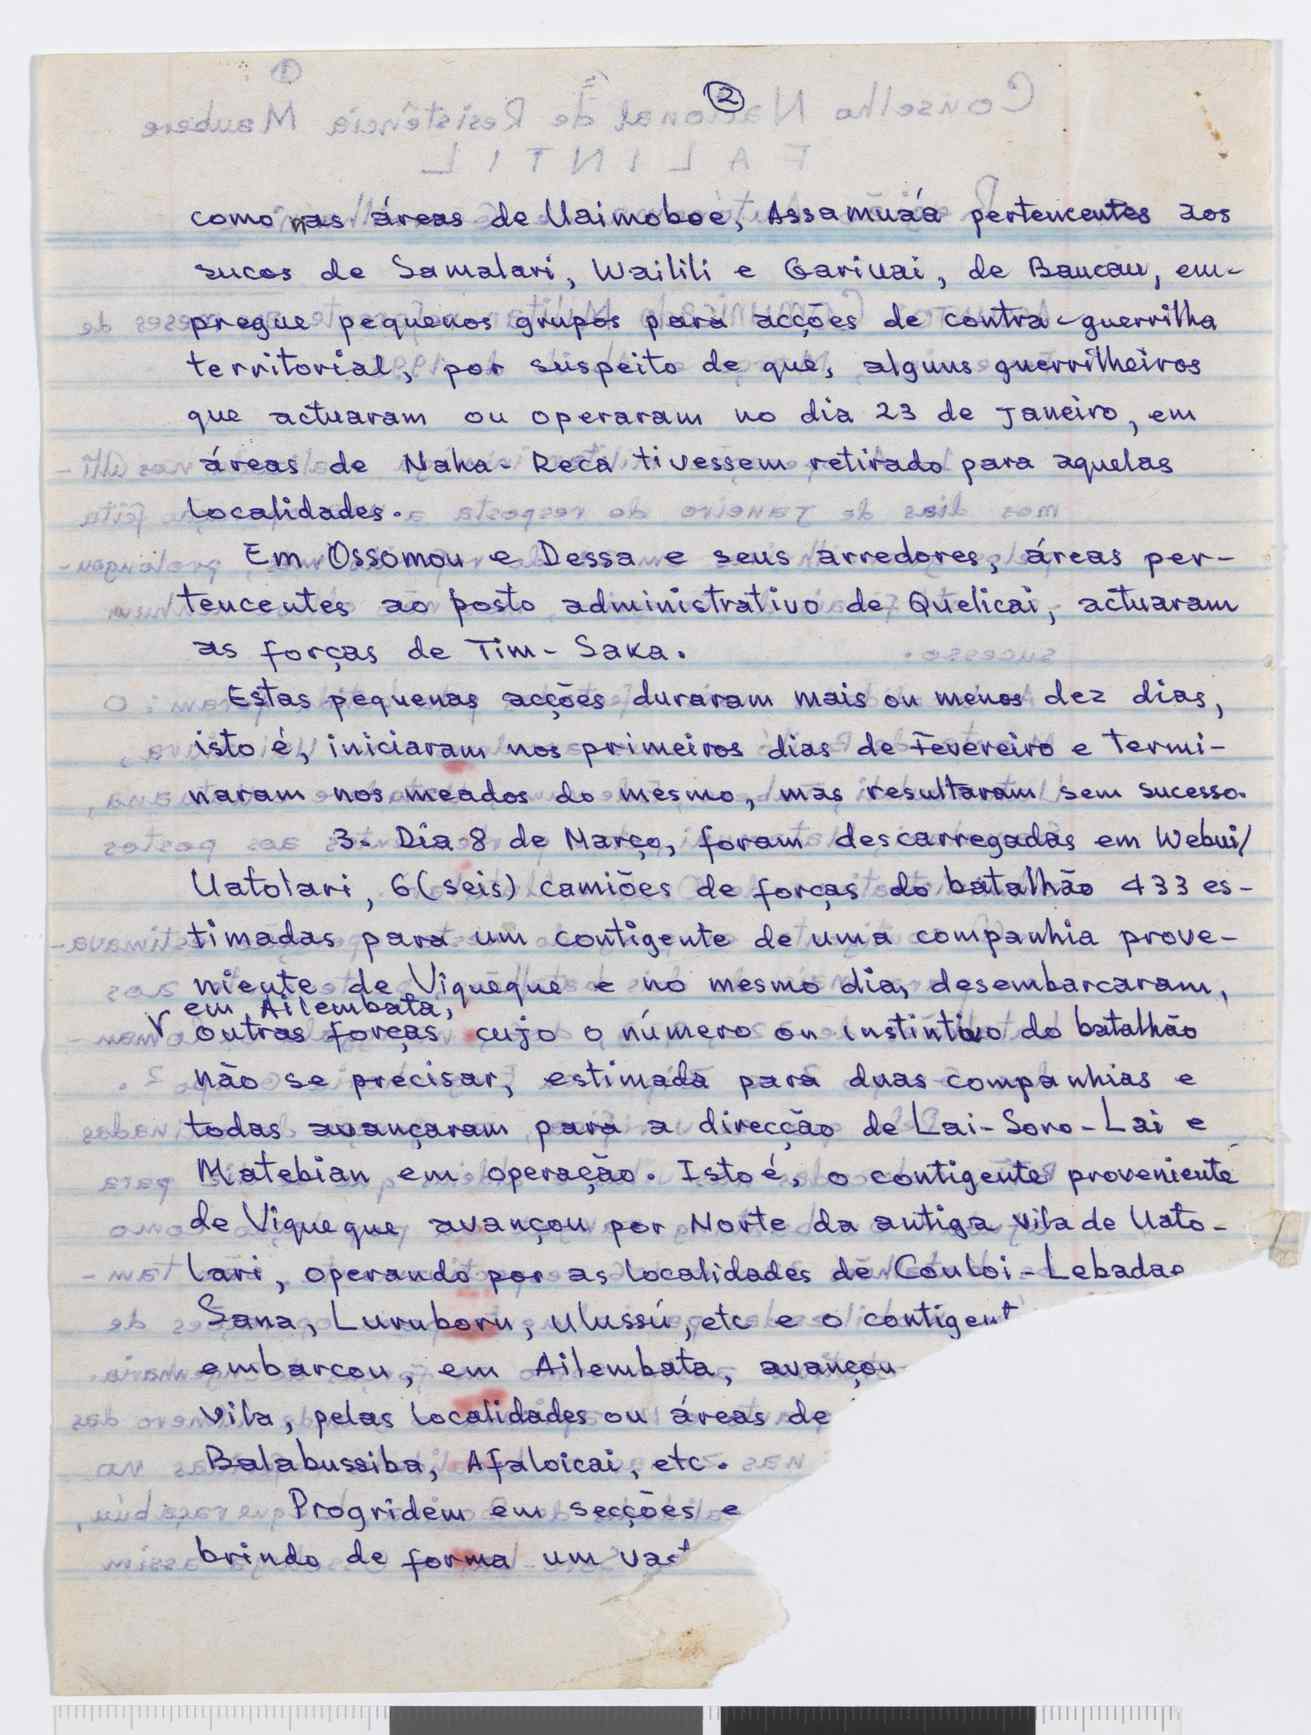 2
como nas áreas de Uaimoboe, Assamuáá pertencentes aos
sucos de Samalari, Wailili e Gariuai, de Baucau, em-
pregue pequenos grupos para acções de contra-guerrilha
territorial, por suspeito de que, alguns guerrilheiros
que actuaram ou operaram no dia 23 de Janeiro, em
áreas de Naha-Reca tivessem retirado para aquelas
localidades.
Em Ossomou e Dessa e seus arredores, áreas per-
tencentes ao posto administrativo de Quelicai, actuaram
as forças de Tim-Saka.
Estas pequenas acções duraram mais ou menos dez dias,
isto é, iniciaram nos primeiros dias de Fevereiro e termi-
naram nos meados do mesmo, mas resultaram sem sucesso.
3. Dia 8 de Março, foram descarregadas em Webui/
Uatolari, 6 (seis) camiões de forças do batalhão 433 es-
timadas para um contigente de uma companhia prove-
niente de Viqueque e no mesmo dia, desembarcaram,
em Ailembata,
outras forças cujo o número ou instintivo do batalhão
não se precisar, estimada para duas companhias e
todas avançaram para a direcção de Lai-Soro-Lai e
Matebian em operação. Isto é, o contigente proveniente
de Viqueque avançou por Norte da antiga vila de Uato-
lari, operando por as localidades de Couloi-Lebadae
Sana, Luruboru, Ulussú, etc e o contigent
embarcou, em Ailembata, avançou
vila, pelas localidades ou áreas de
Balabussiba, Afaloicai, etc.
Progridem em secções e
brindo de forma um vast